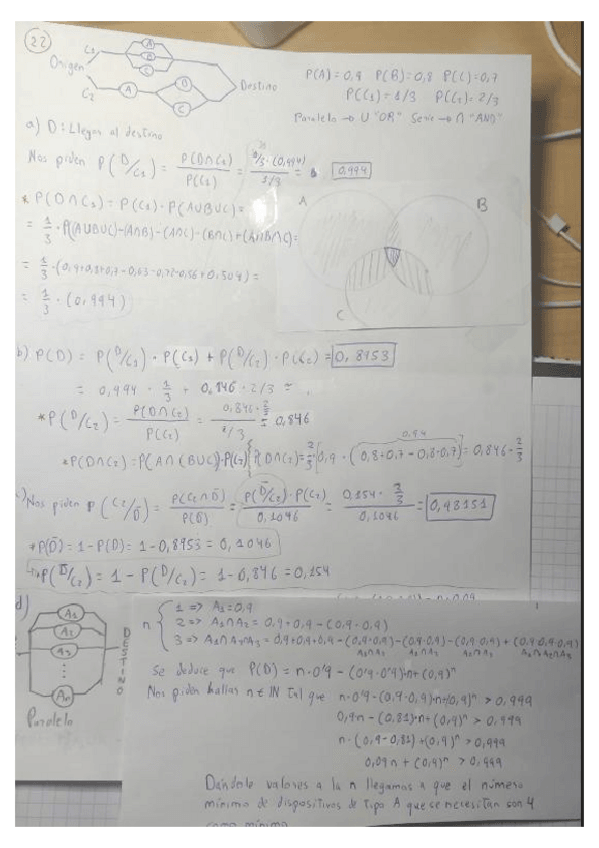 22
C₁
Origen
C₂
A
B
C
A
B
C
Destino
P(A)=0,9 P(B)=0,8 P(C)=0,7
P(C₁)=1/3 P(C₂)=2/3
Paralelo → ∪ "OR" Serie → ∩ "AND"
a) D: Llegar al destino
Nos piden P(D/C₁) = P(D∩C₁)/P(C₁) = 1/3·(0,994)/1/3 = 0,994
* P(D∩C₁) = P(C₁)·P(A∪B∪C)=
= 1/3·P(A∪B∪C)-(A∩B)-(A∩C)-(B∩C)+(A∩B∩C)=
= 1/3·(0,9+0,8+0,7-0,63-0,72-0,56+0,504)=
= 1/3·(0,994)
A
B
C
b) P(D) = P(D/C₁)·P(C₁) + P(D/C₂)·P(C₂) = 0,8953
= 0,994·1/3 + 0,846·2/3 =
*P(D/C₂) = P(D∩C₂)/P(C₂) = 0,846·2/3/2/3 = 0,846
0,94
*P(D∩C₂) = P(A∩(B∪C))·P(C₂) P(D∩C₂)=2/3[0,9·(0,8+0,7-0,8·0,7)]=0,846·2/3
Nos piden P(C₂/D̄) = P(C₂∩D̄)/P(D̄) = P(D̄/C₂)·P(C₂)/0,1046 = 0,154·2/3/0,1046 = 0,98151
*P(D̄) = 1-P(D) = 1-0,8953 = 0,1046
*P(D̄/C₂) = 1-P(D/C₂) = 1-0,846 = 0,154
d)
A₁
A₂
A₃
Aₙ
DESTINO
Paralelo
n
1 => A₁=0,9
2 => A₁∩A₂ = 0,9+0,9-(0,9·0,9)
3 => A₁∩A₂∩A₃ = 0,9+0,9+0,9-(0,9·0,9)-(0,9·0,9)-(0,9·0,9)+(0,9·0,9·0,9)
A₁∩A₂ A₁∩A₃ A₂∩A₃ A₁∩A₂∩A₃
Se deduce que P(D) = n·0'9-(0'9·0'9)·n+(0,9)ⁿ
Nos piden hallar n∈ℕ tal que n·0'9-(0,9·0,9)·n+(0,9)ⁿ > 0,999
0,9n-(0,81)·n+(0,9)ⁿ > 0,999
n·(0,9-0,81)+(0,9)ⁿ > 0,999
0,09n+(0,9)ⁿ > 0,999
Dándole valores a la n llegamos a que el número
mínimo de dispositivos de tipo A que se necesitan son 4
como mínimo